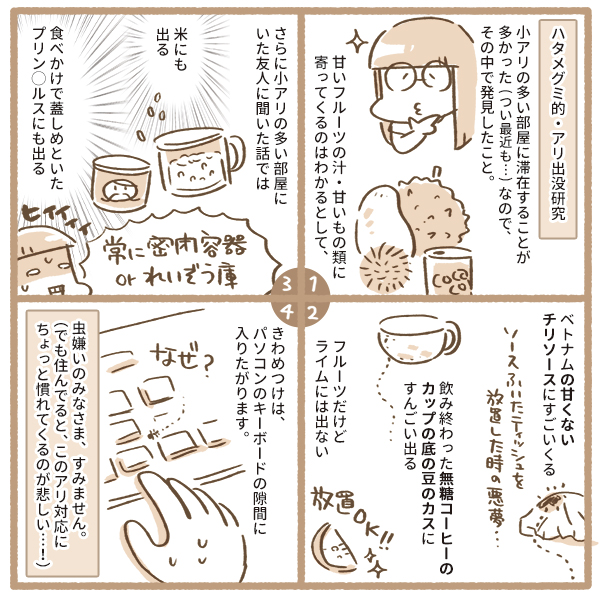 ハタメグミ的・アリ出没研究
小アリの多い部屋に滞在することが
多かった(つい最近も…)なので、
その中で発見したこと。
甘いフルーツの汁・甘いもの類に
寄ってくるのはわかるとして、
COCO
1
ベトナムの甘くない
チリソースにすごいくる
ソースふいたティッシュを
放置した時の悪夢…
飲み終わった無糖コーヒーの
カップの底の豆のカスに
すんごい出る
フルーツだけど
ライムには出ない
放置OK!!
2
さらに小アリの多い部屋に
いた友人に聞いた話では
米にも
出る
食べかけで蓋しめといた
プリン◯ルスにも出る
ヒイィィィ
常に密閉容器
orれいぞう庫
3
きわめつけは、
パソコンのキーボードの隙間に
入りたがります。
なぜ?
虫嫌いのみなさま、すみません。
(でも住んでると、このアリ対応に
ちょっと慣れてくるのが悲しい…!)
4